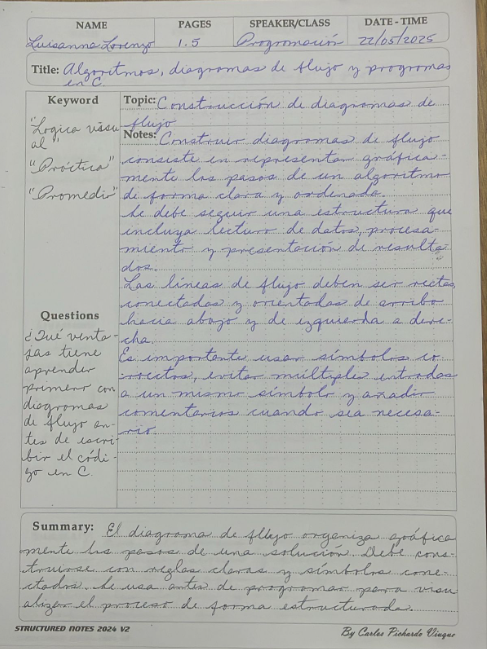 NAME PAGES SPEAKER/CLASS DATE - TIME
Luisanna Lorenzo 1.5 Programación 22/05/2025
Title: Algoritmos, diagramas de flujo y programas
en C
Keyword
"Logica visu
al"
"Práctica"
"Promedi"
Questions
¿Qué venta-
jas tiene
aprender
primero con
diagramas
de flujo an-
tes de escri
bir el códi-
go en C.
Topic: Construcción de diagramas de
flujo
Notes: Construir diagramas de flujo
consiste en representar gráfica-
mente los pasos de un algoritmo
de forma clara y ordenada.
Se debe seguir una estructura que
incluya lectura de datos, procesa
miento y presentación de resulta
dos.
Las líneas de flujo deben ser rectas,
conectadas y orientadas de arriba
hacia abajo y de izquierda a dere-
cha.
Es importante usar símbolos co
rrectos, evitar múltiples entradas
a un mismo símbolo y añadir
comentarios cuando sea necesa-
rio.
Summary: El diagrama de flujo organiza gráfica
mente los pasos de una solución. Debe cons-
truirse con reglas claras y símbolos cone-
ctados. Se usa antes de programar para visu
alizar el proceso de forma estructurada.
STRUCTURED NOTES 2024 V2 By Carlos Pichardo Viuque